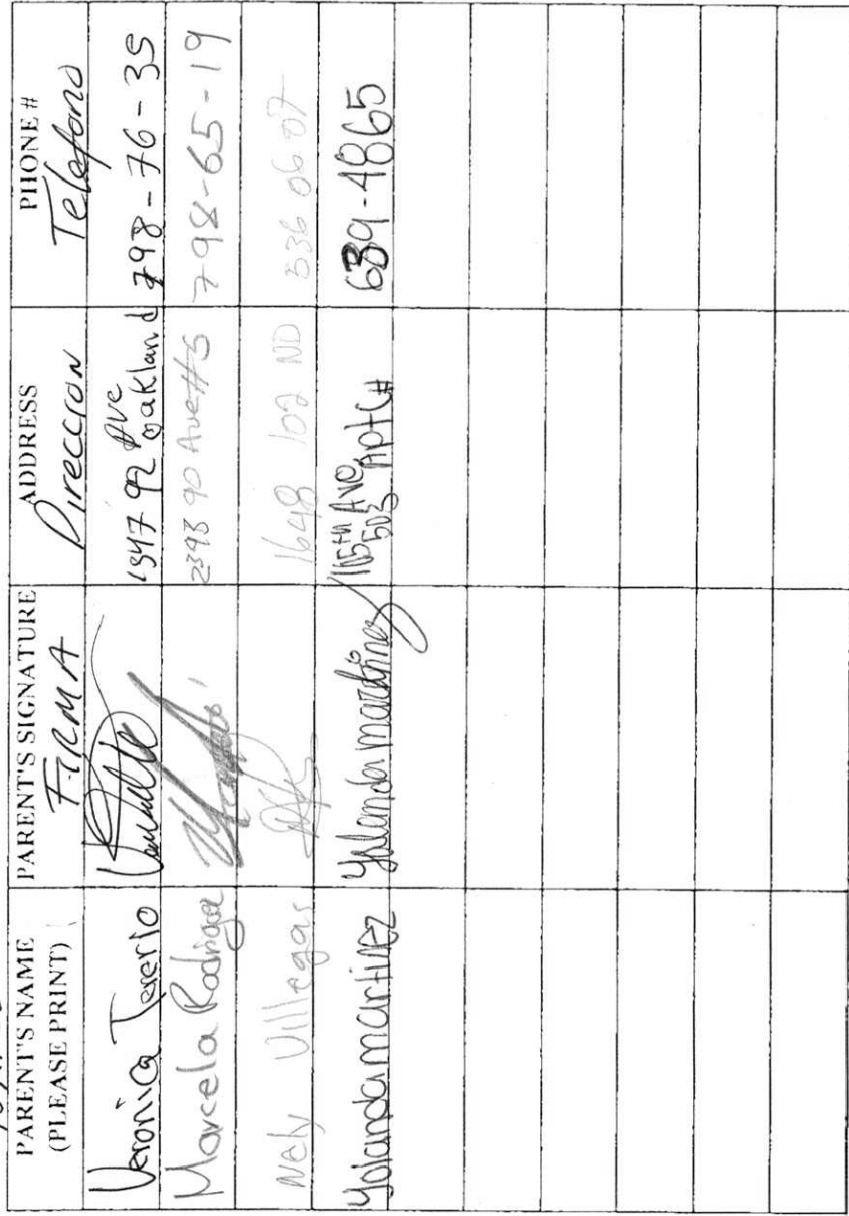 PARENT'S NAME
(PLEASE PRINT)
PARENT'S SIGNATURE
FIRMA
ADDRESS
Direccion
PHONE #
Telefono
Veronica
1947 92 Ave
Oakland
798-76-35
Marcela Rodriguez
2398 90 Ave #5
798-65-19
Nely Villegas
1648 102 ND
536 06 07
Yolanda martinez
Yolanda martinez
105th Ave
503 Apt C#
639-4865